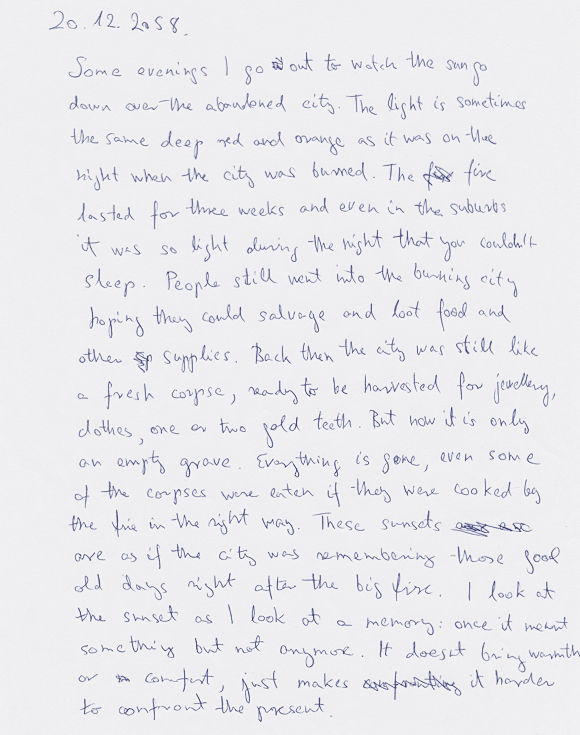 20.12.2058.
Some evenings I go out to watch the sun go
down over the abandoned city. The light is sometimes
the same deep red and orange as it was on the
night when the city was burned. The fire
lasted for three weeks and even in the suburbs
it was so light during the night that you couldn't
sleep. People still went into the burning city
hoping they could salvage and loot food and
other supplies. Back then the city was still like
a fresh corpse, ready to be harvested for jewellery,
clothes, one or two gold teeth. But now it is only
an empty grave. Everything is gone, even some
of the corpses were eaten if they were cooked by
the fire in the right way. These sunsets
are as if the city was remembering those good
old days right after the big fire. I look at
the sunset as I look at a memory: once it meant
something but not anymore. It doesn't bring warmth
or comfort, just makes it harder
to confront the present.